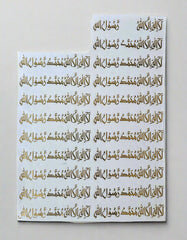 لا إله إلا الله رسول الله
لا إله إلا الله محمد رسول الله
لا إله إلا الله محمد رسول الله لا إله إلا الله محمد رسول الله
لا إله إلا الله محمد رسول الله لا إله إلا الله محمد رسول الله
لا إله إلا الله محمد رسول الله لا إله إلا الله محمد رسول الله
لا إله إلا الله محمد رسول الله لا إله إلا الله محمد رسول الله
لا إله إلا الله محمد رسول الله لا إله إلا الله محمد رسول الله
لا إله إلا الله محمد رسول الله لا إله إلا الله محمد رسول الله
لا إله إلا الله محمد رسول الله لا إله إلا الله محمد رسول الله
لا إله إلا الله محمد رسول الله لا إله إلا الله محمد رسول الله